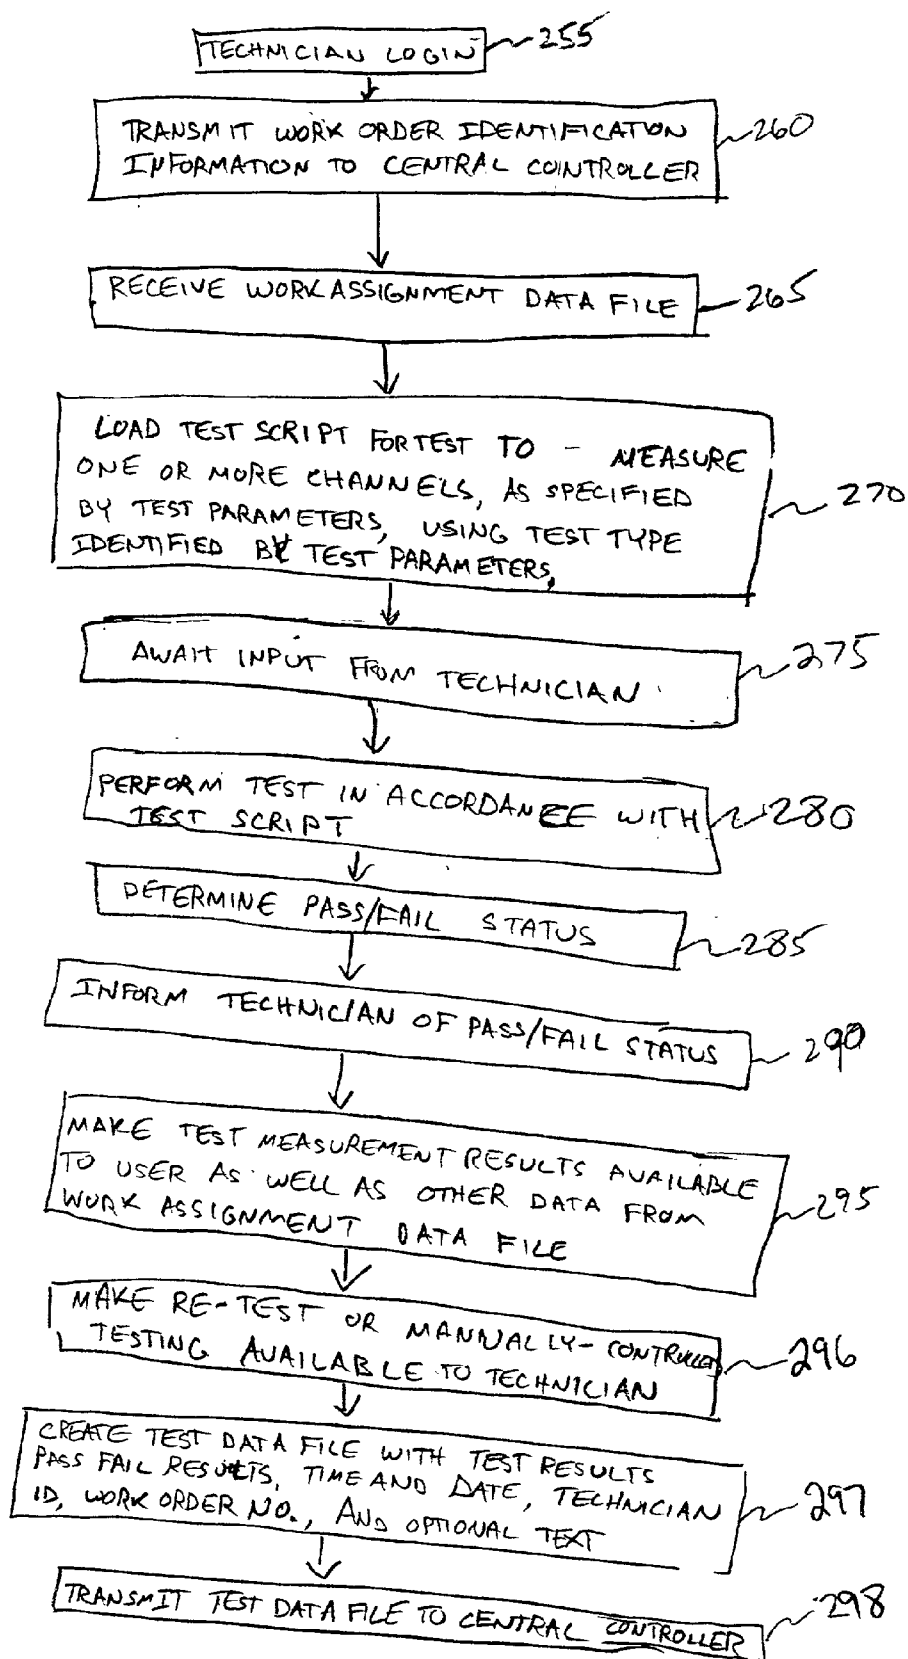 TECHNICIAN LOGIN 255
TRANSMIT WORK ORDER IDENTIFICATION 260
INFORMATION TO CENTRAL COINTROLLER
RECEIVE WORK ASSIGNMENT DATA FILE 265
LOAD TEST SCRIPT FOR TEST TO - MEASURE
ONE OR MORE CHANNELS, AS SPECIFIED 270
BY TEST PARAMETERS, USING TEST TYPE
IDENTIFIED BY TEST PARAMETERS,
AWAIT INPUT FROM TECHNICIAN. 275
PERFORM TEST IN ACCORDANEE WITH 280
TEST SCRIPT
DETERMINE PASS/FAIL STATUS 285
INFORM TECHNICIAN OF PASS/FAIL STATUS 290
MAKE TEST MEASUREMENT RESULTS AVAILABLE
TO USER AS WELL AS OTHER DATA FROM 295
WORK ASSIGNMENT DATA FILE
MAKE RE-TEST OR MANNALLY-CONTROLLED 296
TESTING AVAILABLE TO TECHNICIAN
CREATE TEST DATA FILE WITH TEST RESULTS
PASS FAIL RESULTS, TIME AND DATE, TECHNICIAN 297
ID, WORK ORDER NO., AND OPTIONAL TEXT
TRANSMIT TEST DATA FILE TO CENTRAL CONTROLLER 298